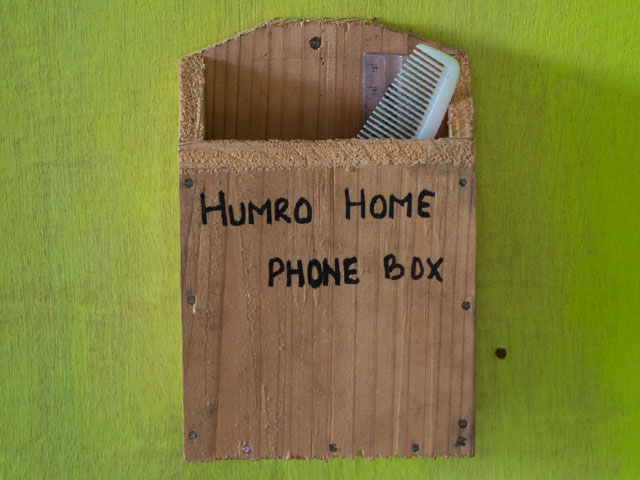 HUMRO HOME
PHONE BOX